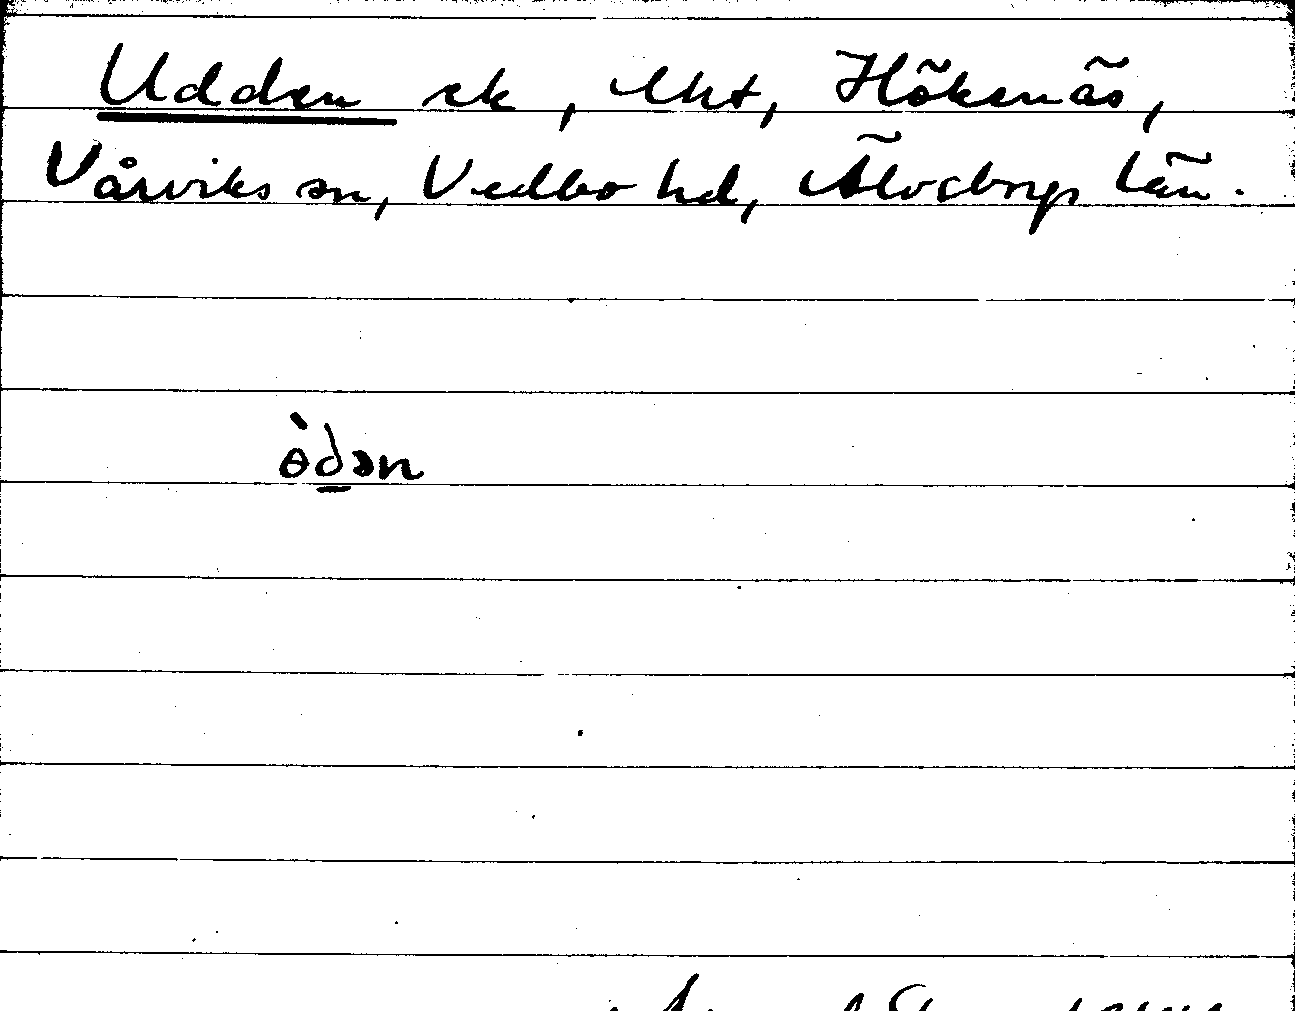 Udden ek, lht, Höksnäs,
Vårviks sn, Vedbo hd, Älvsborgs län.
ɵ̀dən